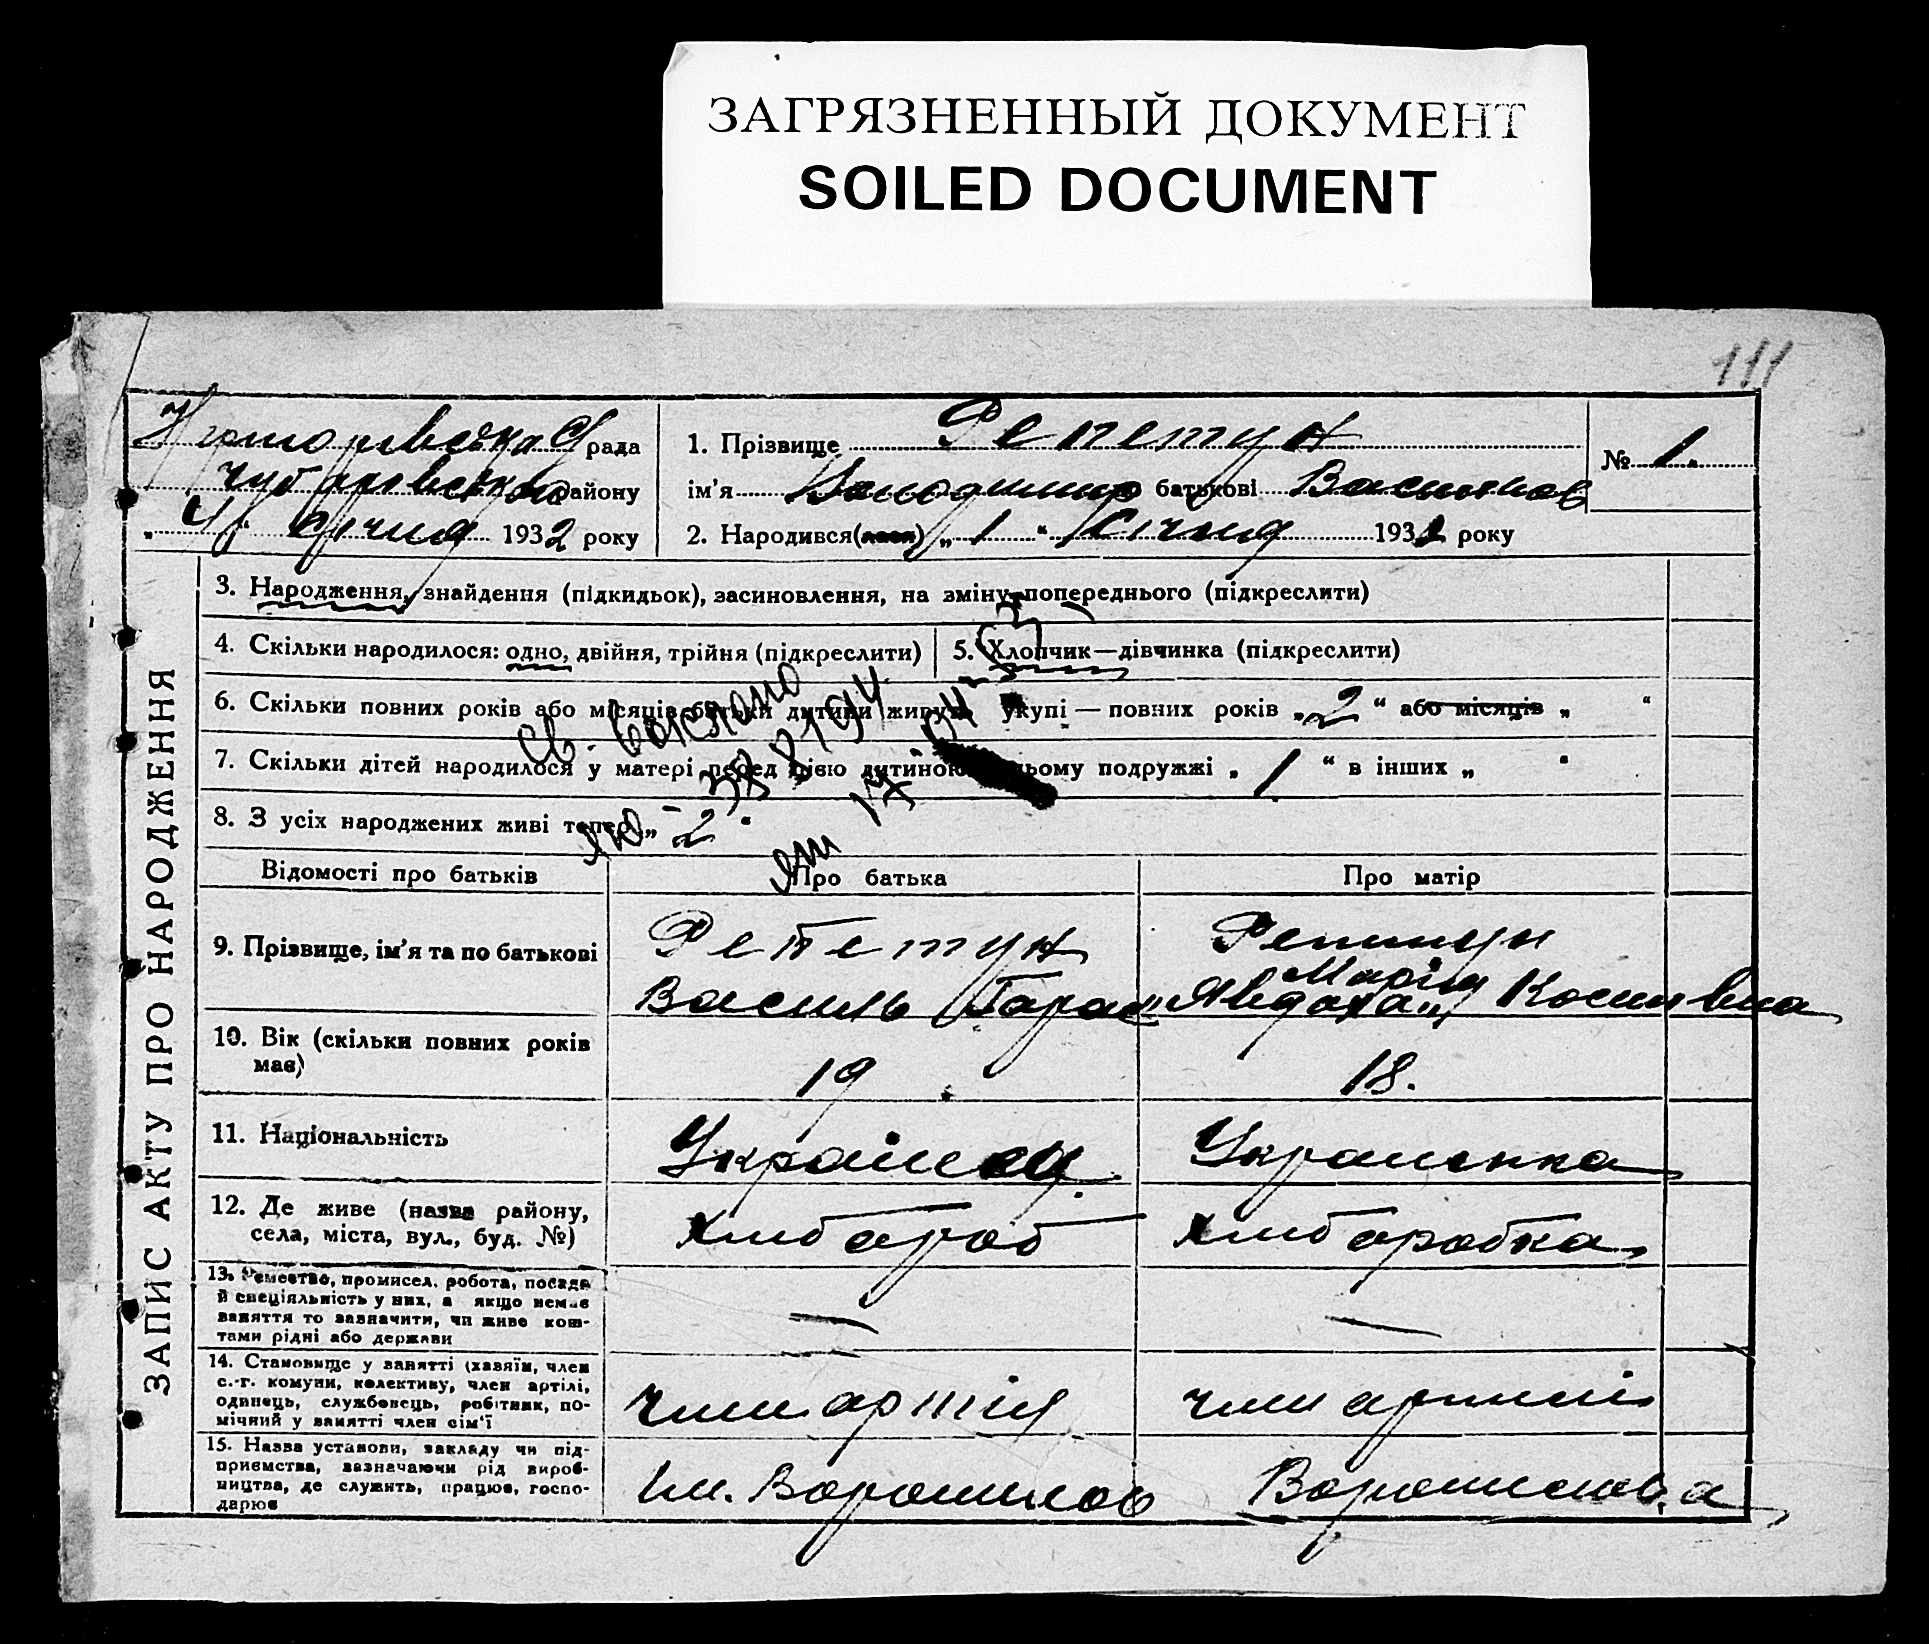 ЗАГРЯЗНЕННЫЙ ДОКУМЕНТ
SOILED DOCUMENT
111
ЗАПИС АКТУ ПРО НАРОДЖЕННЯ
рада
Чубарівського району
„ 4 “ січня 1932 року
1. Прізвище Репетун
ім'я Володимир батькові Васильков
2. Народився(лася) „ 1 “ Січня 1932 року
№ 1.
3. Народження, знайдення (підкидьок), засиновлення, на зміну попереднього (підкреслити)
4. Скільки народилося: одно, двійня, трійня (підкреслити)
5. Хлопчик—дівчинка (підкреслити)
6. Скільки повних років або місяців батьки дитини живуть укупі — повних років „ 2 “ або місяців „ “
7. Скільки дітей народилося у матері перед цією дитиною в цьому подружжі „ 1 “ в інших „ “
8. З усіх народжених живі тепер „ 2 “
Відомості про батьків
Про батька
Про матір
9. Прізвище, ім'я та по батькові
Репетун
Василь Тарас
Репетун
Марія
Явдоха Косит вна
10. Вік (скільки повних років має)
19
18.
11. Національність
Українец
Украинка
12. Де живе (назва району, села, міста, вул., буд. №)
хлибароб
хлибаробка
13. Ремество, промисел, робота, посада
й спеціяльність у них, а якщо немає
заняття то зазначити, чи живе кош-
тами рідні або держави
—
—
14. Становище у занятті (хазяїн, член
с.-г. комуни, колективу, член артілі,
одинець, службовець, робітник, по-
мічний у занятті член сім'ї
член артілі
член артілі
15. Назва установи, закладу чи під-
приємства, зазначаючи рід вироб-
ництва, де служить, працює, госпо-
дарює
Ім. Ворошилов
Ворошилова